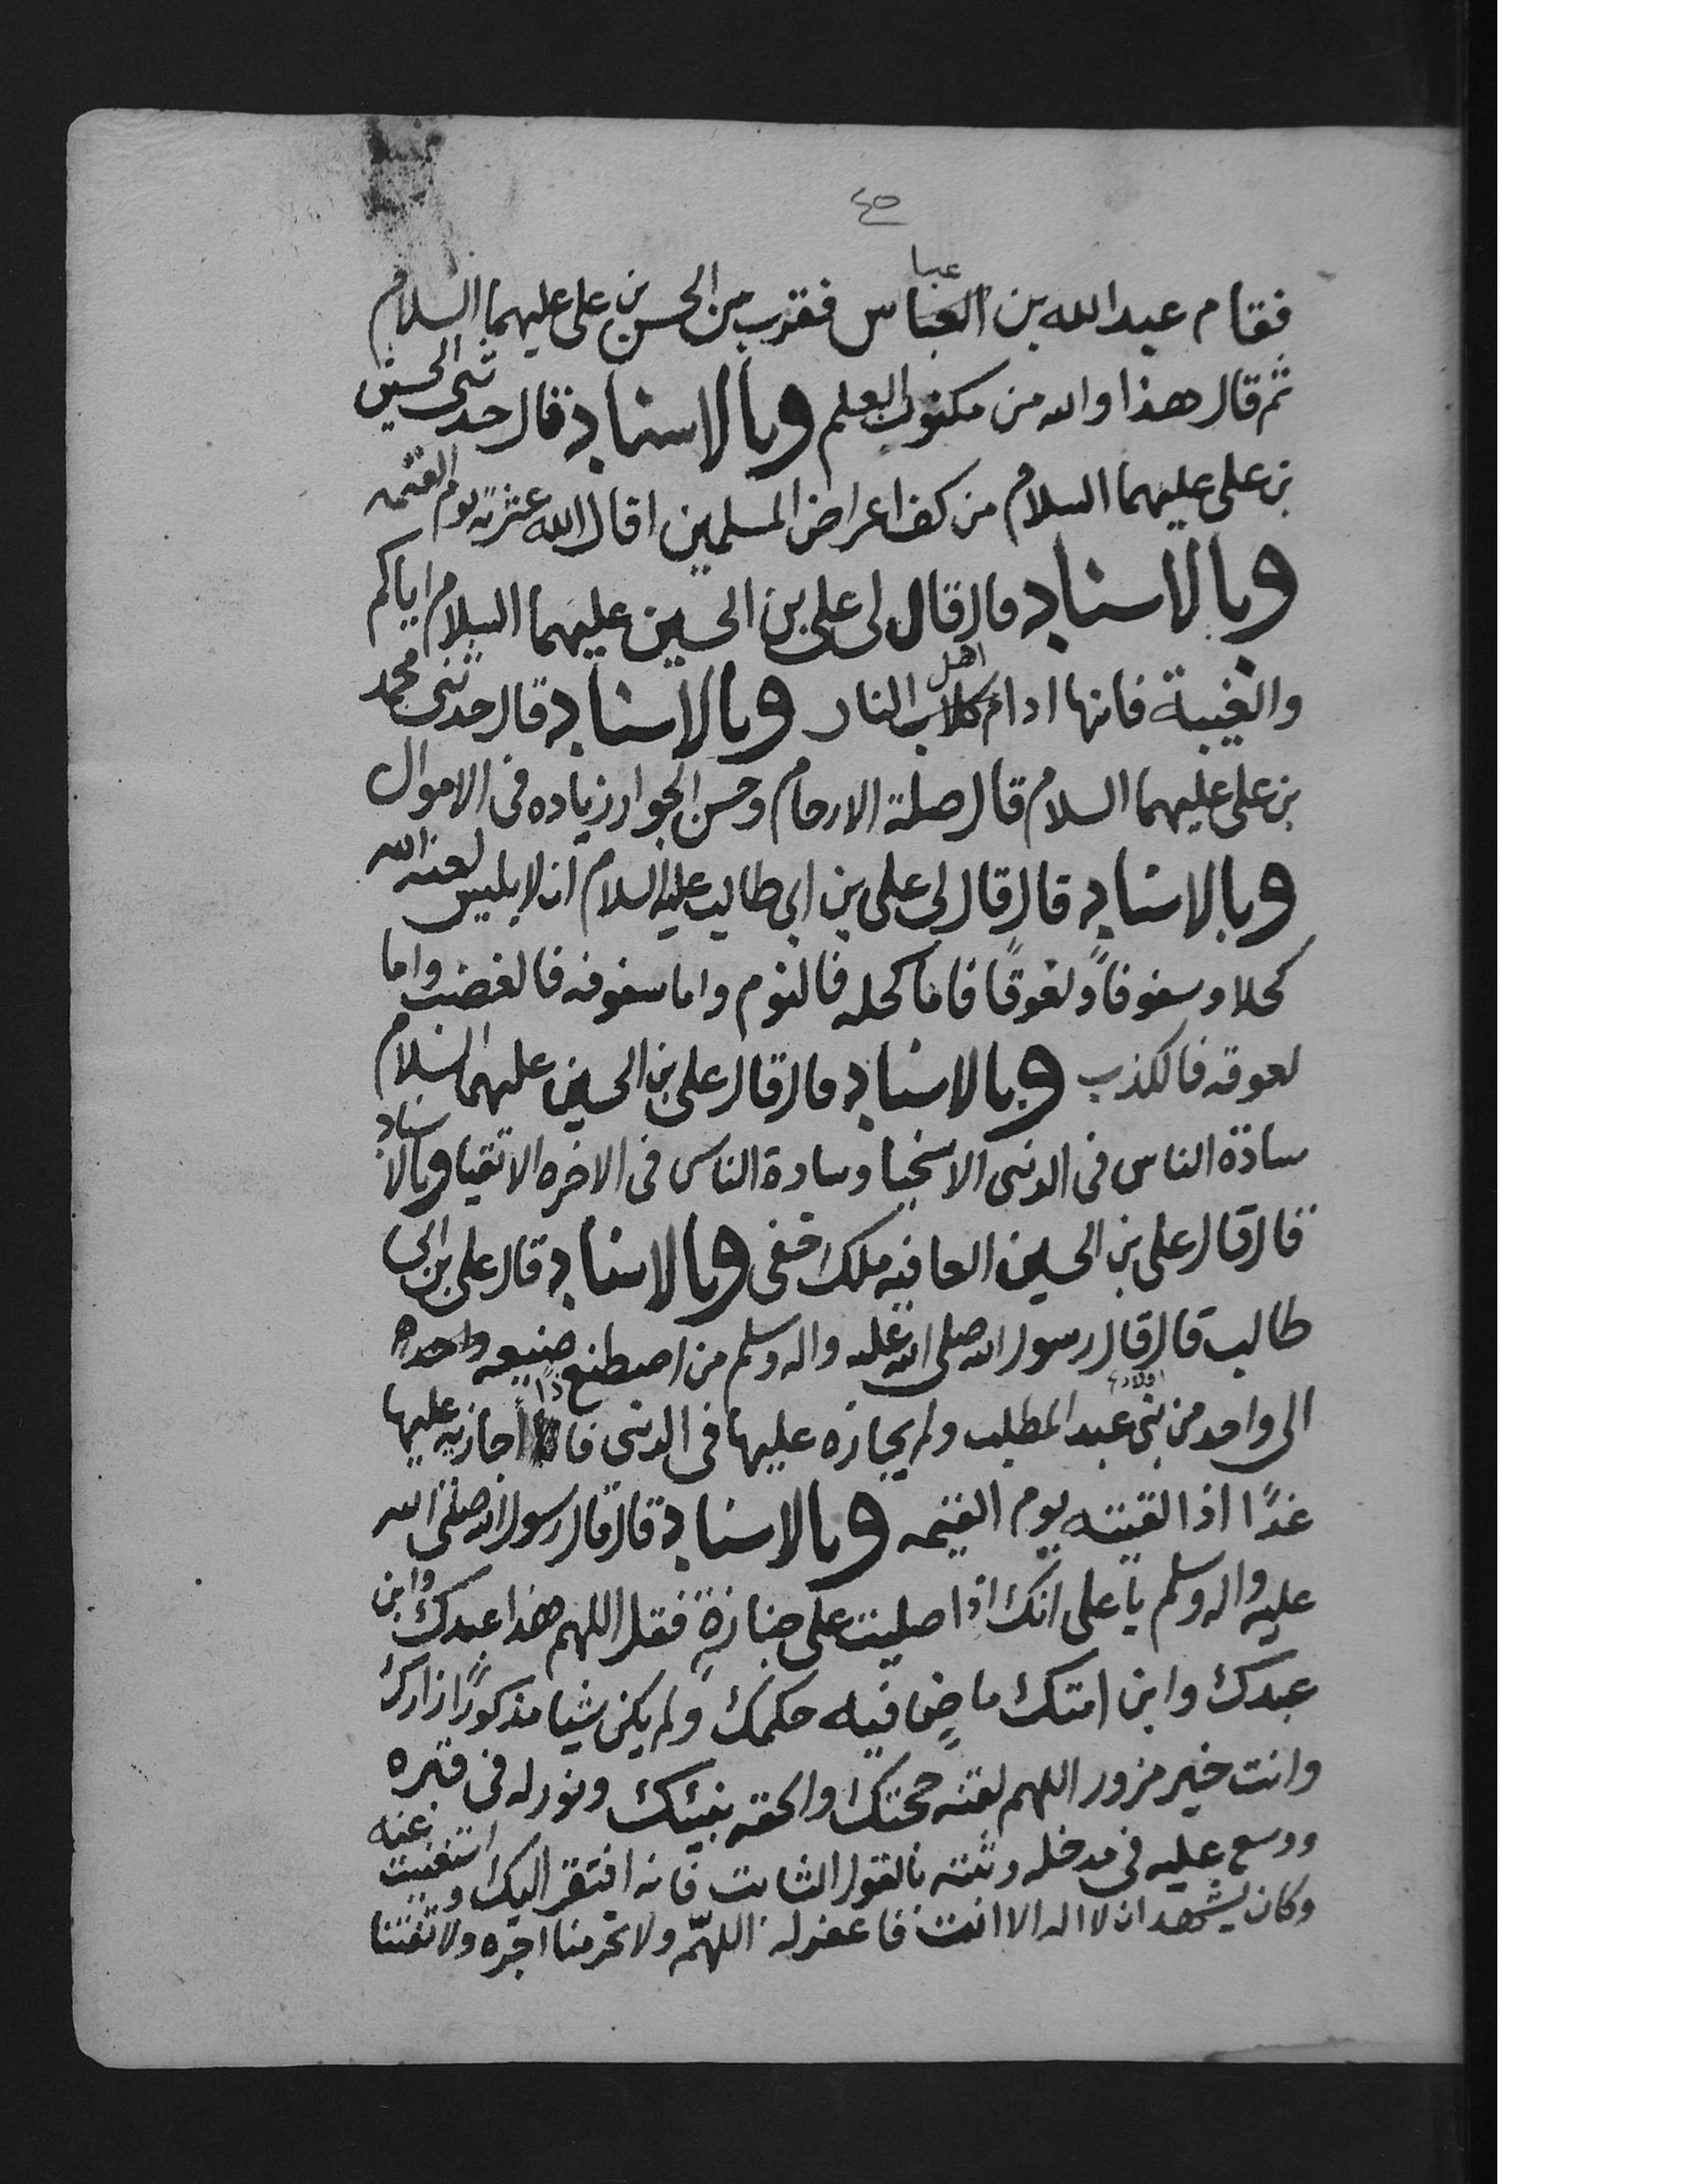 ٤٥
عبا
فقام عبدالله بن العباس فقرب من الحسن بن علي عليهما السلام
ثم قال هذا والله من مكنون العلم وبالاسناد قال حدثني الحسين
بن علي عليهما السلام من كف اعراض المسلمين اقال الله عثرته يوم القيمه
وبالاسناد قال قال لي علي بن الحسين عليهما السلام اياكم
والغيبة فانها ادام كلاب اهل النار وبالاسناد قال حدثني محمد
بن علي عليهما السلام قال صلة الارحام وحسن الجوار زياده في الاموال
وبالاسناد قال قال لي علي بن ابي طالب عليه السلام ان لابليس لعنه الله
كحلا وسفوفاً ولعوقاً فاما كحله فالنوم واما سفوفه فالغضب واما
لعوقه فالكذب وبالاسناد قال قال علي بن الحسين عليهما السلام
سادة الناس في الدنى الاسخيا وسادة الناس في الاخره الاتقيا وبالاسناد
قال قال علي بن الحسين العافيه ملك خفى وبالاسناد قال علي بن ابي
طالب قال قال رسول الله صلى الله عليه واله وسلم من اصطنع صنيعه واحده
الى واحد من بني اولاد عبد المطلب ولم يجازه عليها في الدنى فانا اجازيه عليها
غدًا اذا لقيته يوم القيمه وبالاسناد قال قال رسول الله صلى الله
عليه واله وسلم يا علي انك اذا صليت على جنازةٍ فقل اللهم هذا عبدك وابن
عبدك وابن امتك ماضٍ فيه حكمك ولم يكن شيا مذكورًا زارك
وانت خير مزور اللهم لقنه حجتك والحقه بنبيك ونور له في قبره
ووسع عليه في مدخله وثبته بالقول الثابت فانه افتقر اليك واستغنيت عنه
وكان يشهد ان لا اله الا انت فاغفر له اللهمّ ولا تحرمنا اجره ولا تفتنا